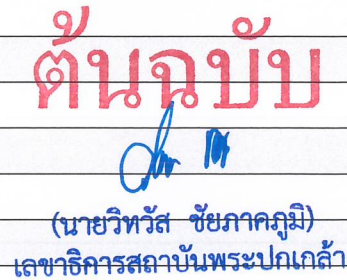 ต้นฉบับ
(นายวิทวัส ชัยภาคภูมิ)
เลขาธิการสถาบันพระปกเกล้า